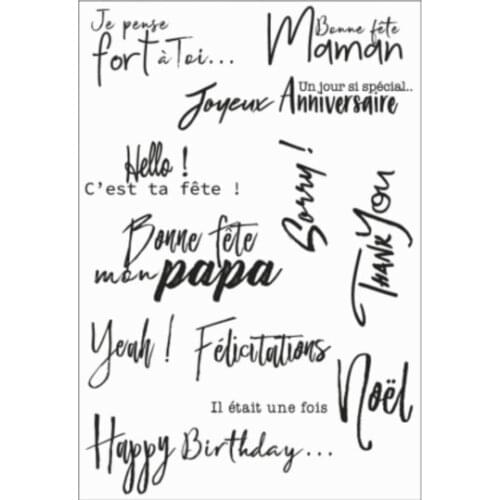 Je pense
fort à Toi...
Bonne fête
Maman
Un jour si spécial..
Joyeux Anniversaire
Hello !
C'est ta fête !
Sorry !
Thank You
Bonne fête
mon papa
Yeah !
Félicitations
Noël
Il était une fois
Happy Birthday...